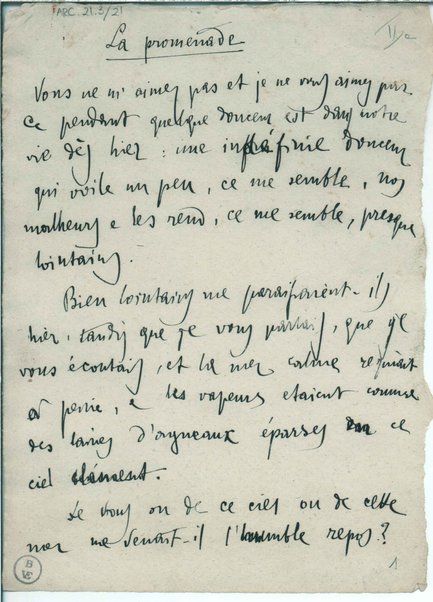 ARC. 21.3/21
La promenade
Vous ne m'aimez pas et je ne vous aimez pas
ce pendant quelque douceur est dans notre
vie dès hier : une infinie douceur
qui voile un peu, ce me semble, nos
malheurs e les rend, ce me semble, presque
lointains.
Bien lointains me paraissaient-ils
hier, tandis que je vous parlais, que je
vous écoutais, et la mer calme
e les vapeurs etaient comme
des laines d'agneaux éparses ce
ciel clément.
Le vous ou de ce ciel ou de cette
mer me venait-il l'humble repos?
1
B
VE